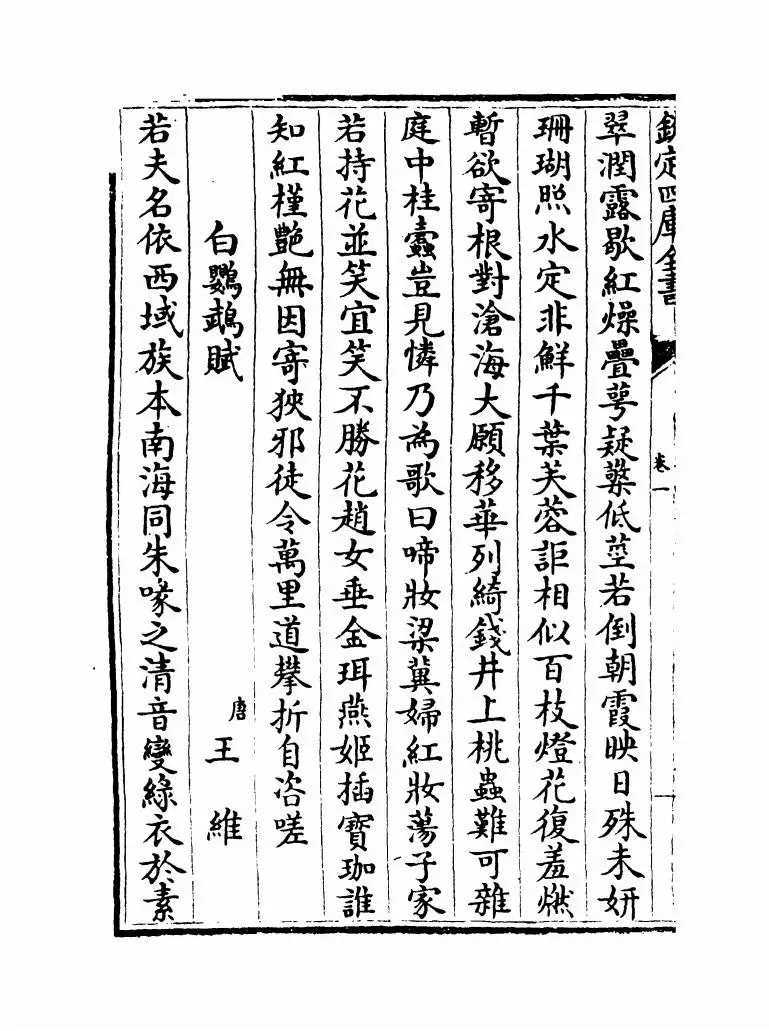 欽定四庫全書
卷一
翠潤露歇紅燥疊萼疑蘂低莖若倒朝霞映日殊未妍
珊瑚照水定非鮮千葉芙蓉詎相似百枝燈花復羞燃
暫欲寄根對滄海大願移華列綺錢井上桃蟲難可雜
庭中桂蠹豈見憐乃為歌曰啼妝梁冀婦紅妝蕩子家
若持花並笑宜笑不勝花趙女垂金珥燕姬插寶珈誰
知紅槿艷無因寄狹邪徒令萬里道攀折自咨嗟
白鸚鵡賦
唐王維
若夫名依西域族本南海同朱喙之清音變綠衣於素